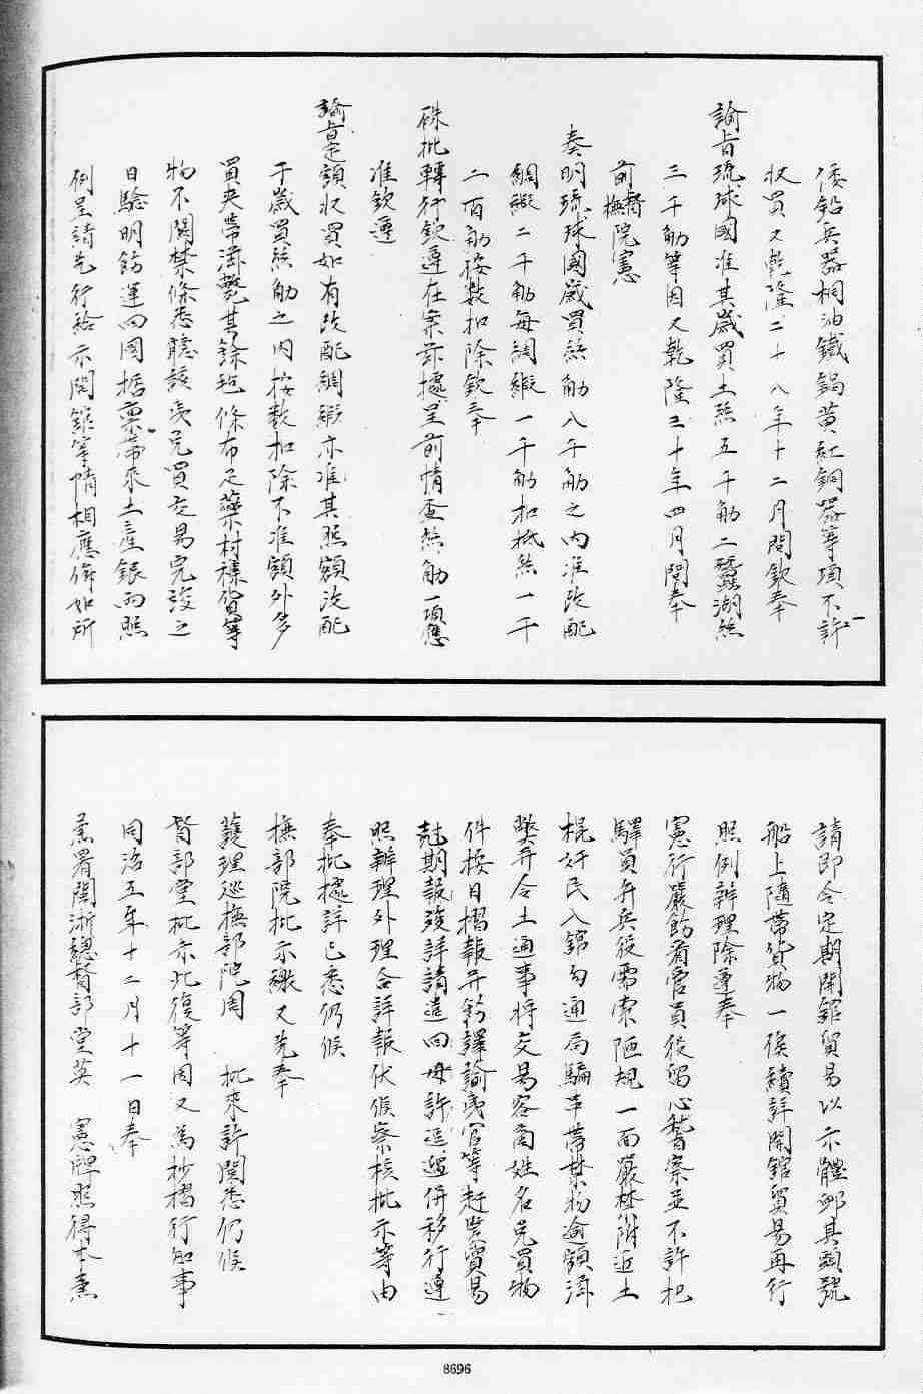 倭鉛兵器桐油鐵鍋黄紅銅器等項不許
收買又乾隆二十八年十二月間欽奉
諭旨琉球國准其歲買土絲五千觔二蠶湖絲
三千觔等因又乾隆三十年四月間奉
前督撫院憲
奏明琉球國歲買絲觔八千觔之内准改配
綢緞二千觔每綢緞一千觔扣抵絲一千
二百觔按數扣除欽奉
硃批轉行欽遵在案茲據呈前情查絲觔一項應
准欽遵
諭旨定額收買如有改配綢緞亦准其照額改配
于歲買絲觔之内按數扣除不准額外多
買夾帶滋弊其餘毡條布疋藥材襍貨等
物不関禁條悉聽該夷兌買交易完竣之
日驗明飭運回國據禀帶來土產銀兩照
例呈請先行給示開館等情相應俯如所
請即令定期開館貿易以示體卹其頭號
船上隨帶貨物一俟續詳開館貿易再行
照例辦理除遵奉
憲行嚴飭看管員役留心稽察並不許把
驛員弁兵役需索陋規一面嚴禁附近土
棍奸民入館勾通局騙串帶禁物逾額滋
弊并令土通事將交易客商姓名兌買物
件按日摺報并飭譯諭夷官等赶緊貿易
尅期報竣詳請遣回毋許逗遛併移行遵
照辦理外理合詳報伏候察核批示等由
奉批據詳已悉仍候
撫部院批示繳又先奉
護理巡撫部院周　批來詳閱悉仍候
督部堂批示此復等因又為抄摺行知事
同治五年十二月十一日奉
兼署閩浙總督部堂英　憲牌照得本兼
8696